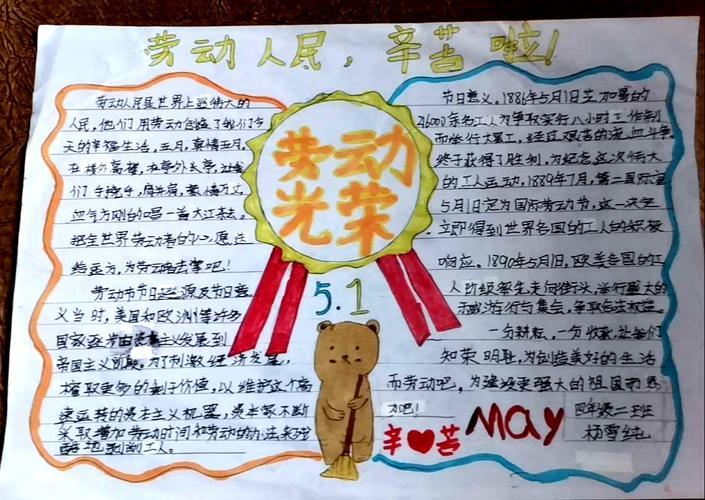 劳动人民，辛苦啦！
劳动人民是世界上最伟大的
人民，他们用劳动创造了我们今
天的幸福生活，五月，真情五月。
在楼外高楼，在亭外长亭，让我
们手挽手，肩并肩，豪情万丈，
血气方刚的唱一首大江东去。
把全世界劳动者的心愿送
给远方，为劳动者去掌吧！
劳动节节日起源及节日意
义当时，美国和欧洲的许多
国家逐步由资本主义发展到
帝国主义阶段，为了刺激经济发展，
榨取更多的剩余价值，以维护这个高
速运转的资本主义机器，资本家不断
采取增加劳动时间和劳动的办法来残
酷地剥削工人。
劳动
光荣
5.1
节日意义。1886年5月1日芝加哥的
216000余名工人为争取实行八小时工作制
而举行大罢工，经过艰苦的流血斗争，
终于获得了胜利，为纪念这次伟大
的工人运动，1889年7月，第二国际宣
5月1日定为国际劳动节，这一决定
立即得到世界各国的工人的积极
响应。1890年5月1日，欧美各国的工
人阶级率先走向街头，举行盛大的
示威游行与集会，争取合法权益。
一分耕耘，一分收获，让我们
知荣明耻，为创造美好的生活
而劳动吧，为建设更强大的祖国而
加吧！
辛苦
May
四年级二班
杨雪纯